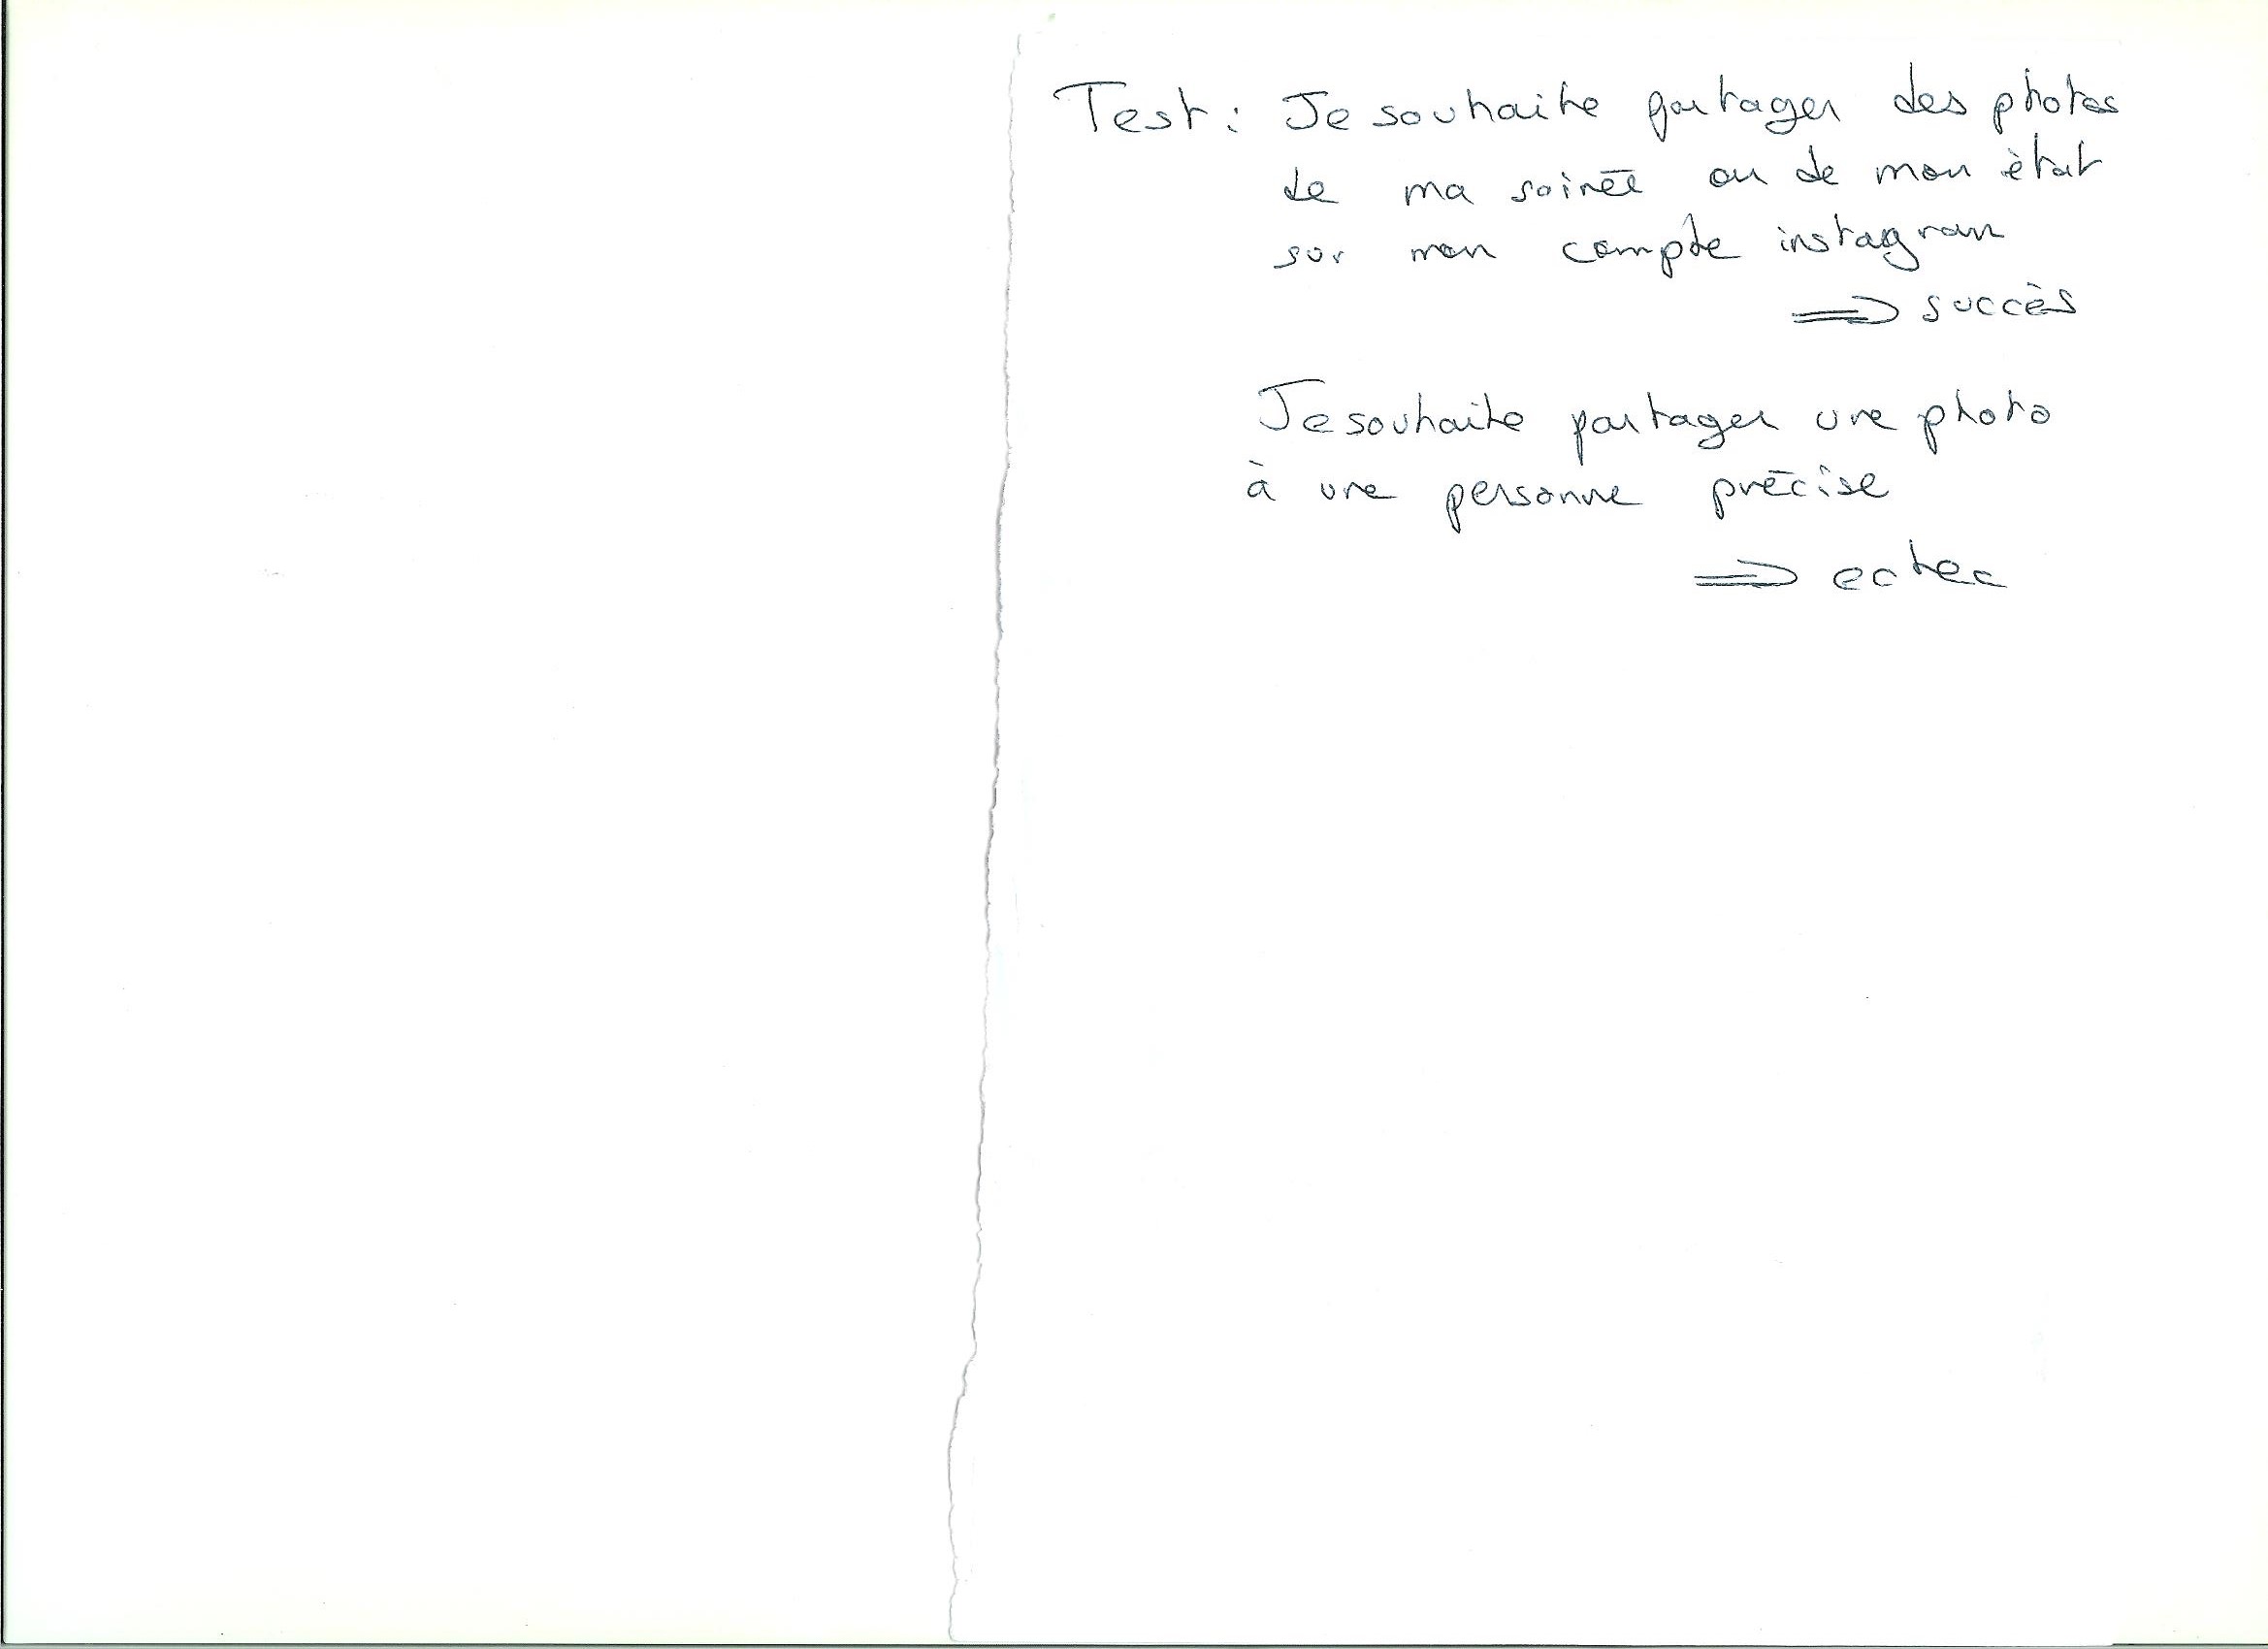 Test : Je souhaite partager des photos
de ma soirée ou de mon ètat
sur mon compte instagram
=> succès
Je souhaite partager une photo
à une personne précise
=> echec